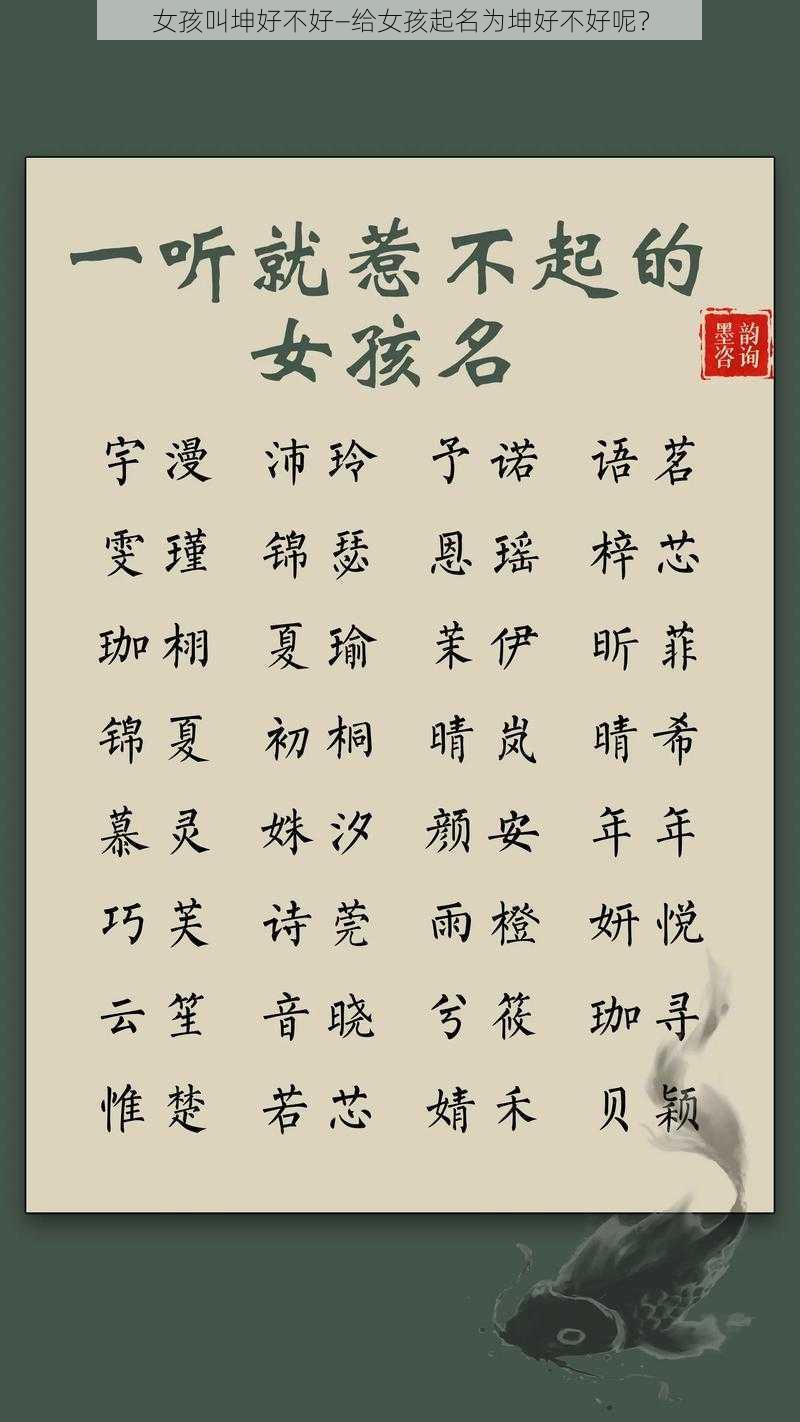 女孩叫坤好不好–给女孩起名为坤好不好呢？
一听就惹不起的
女孩名
墨韵
咨询
宇漫 沛玲 予诺 语茗
雯瑾 锦瑟 恩瑶 梓芯
珈栩 夏瑜 茉伊 昕菲
锦夏 初桐 晴岚 晴希
慕灵 姝汐 颜安 年年
巧芙 诗莞 雨橙 妍悦
云笙 音晓 兮筱 珈寻
惟楚 若芯 婧禾 贝颖